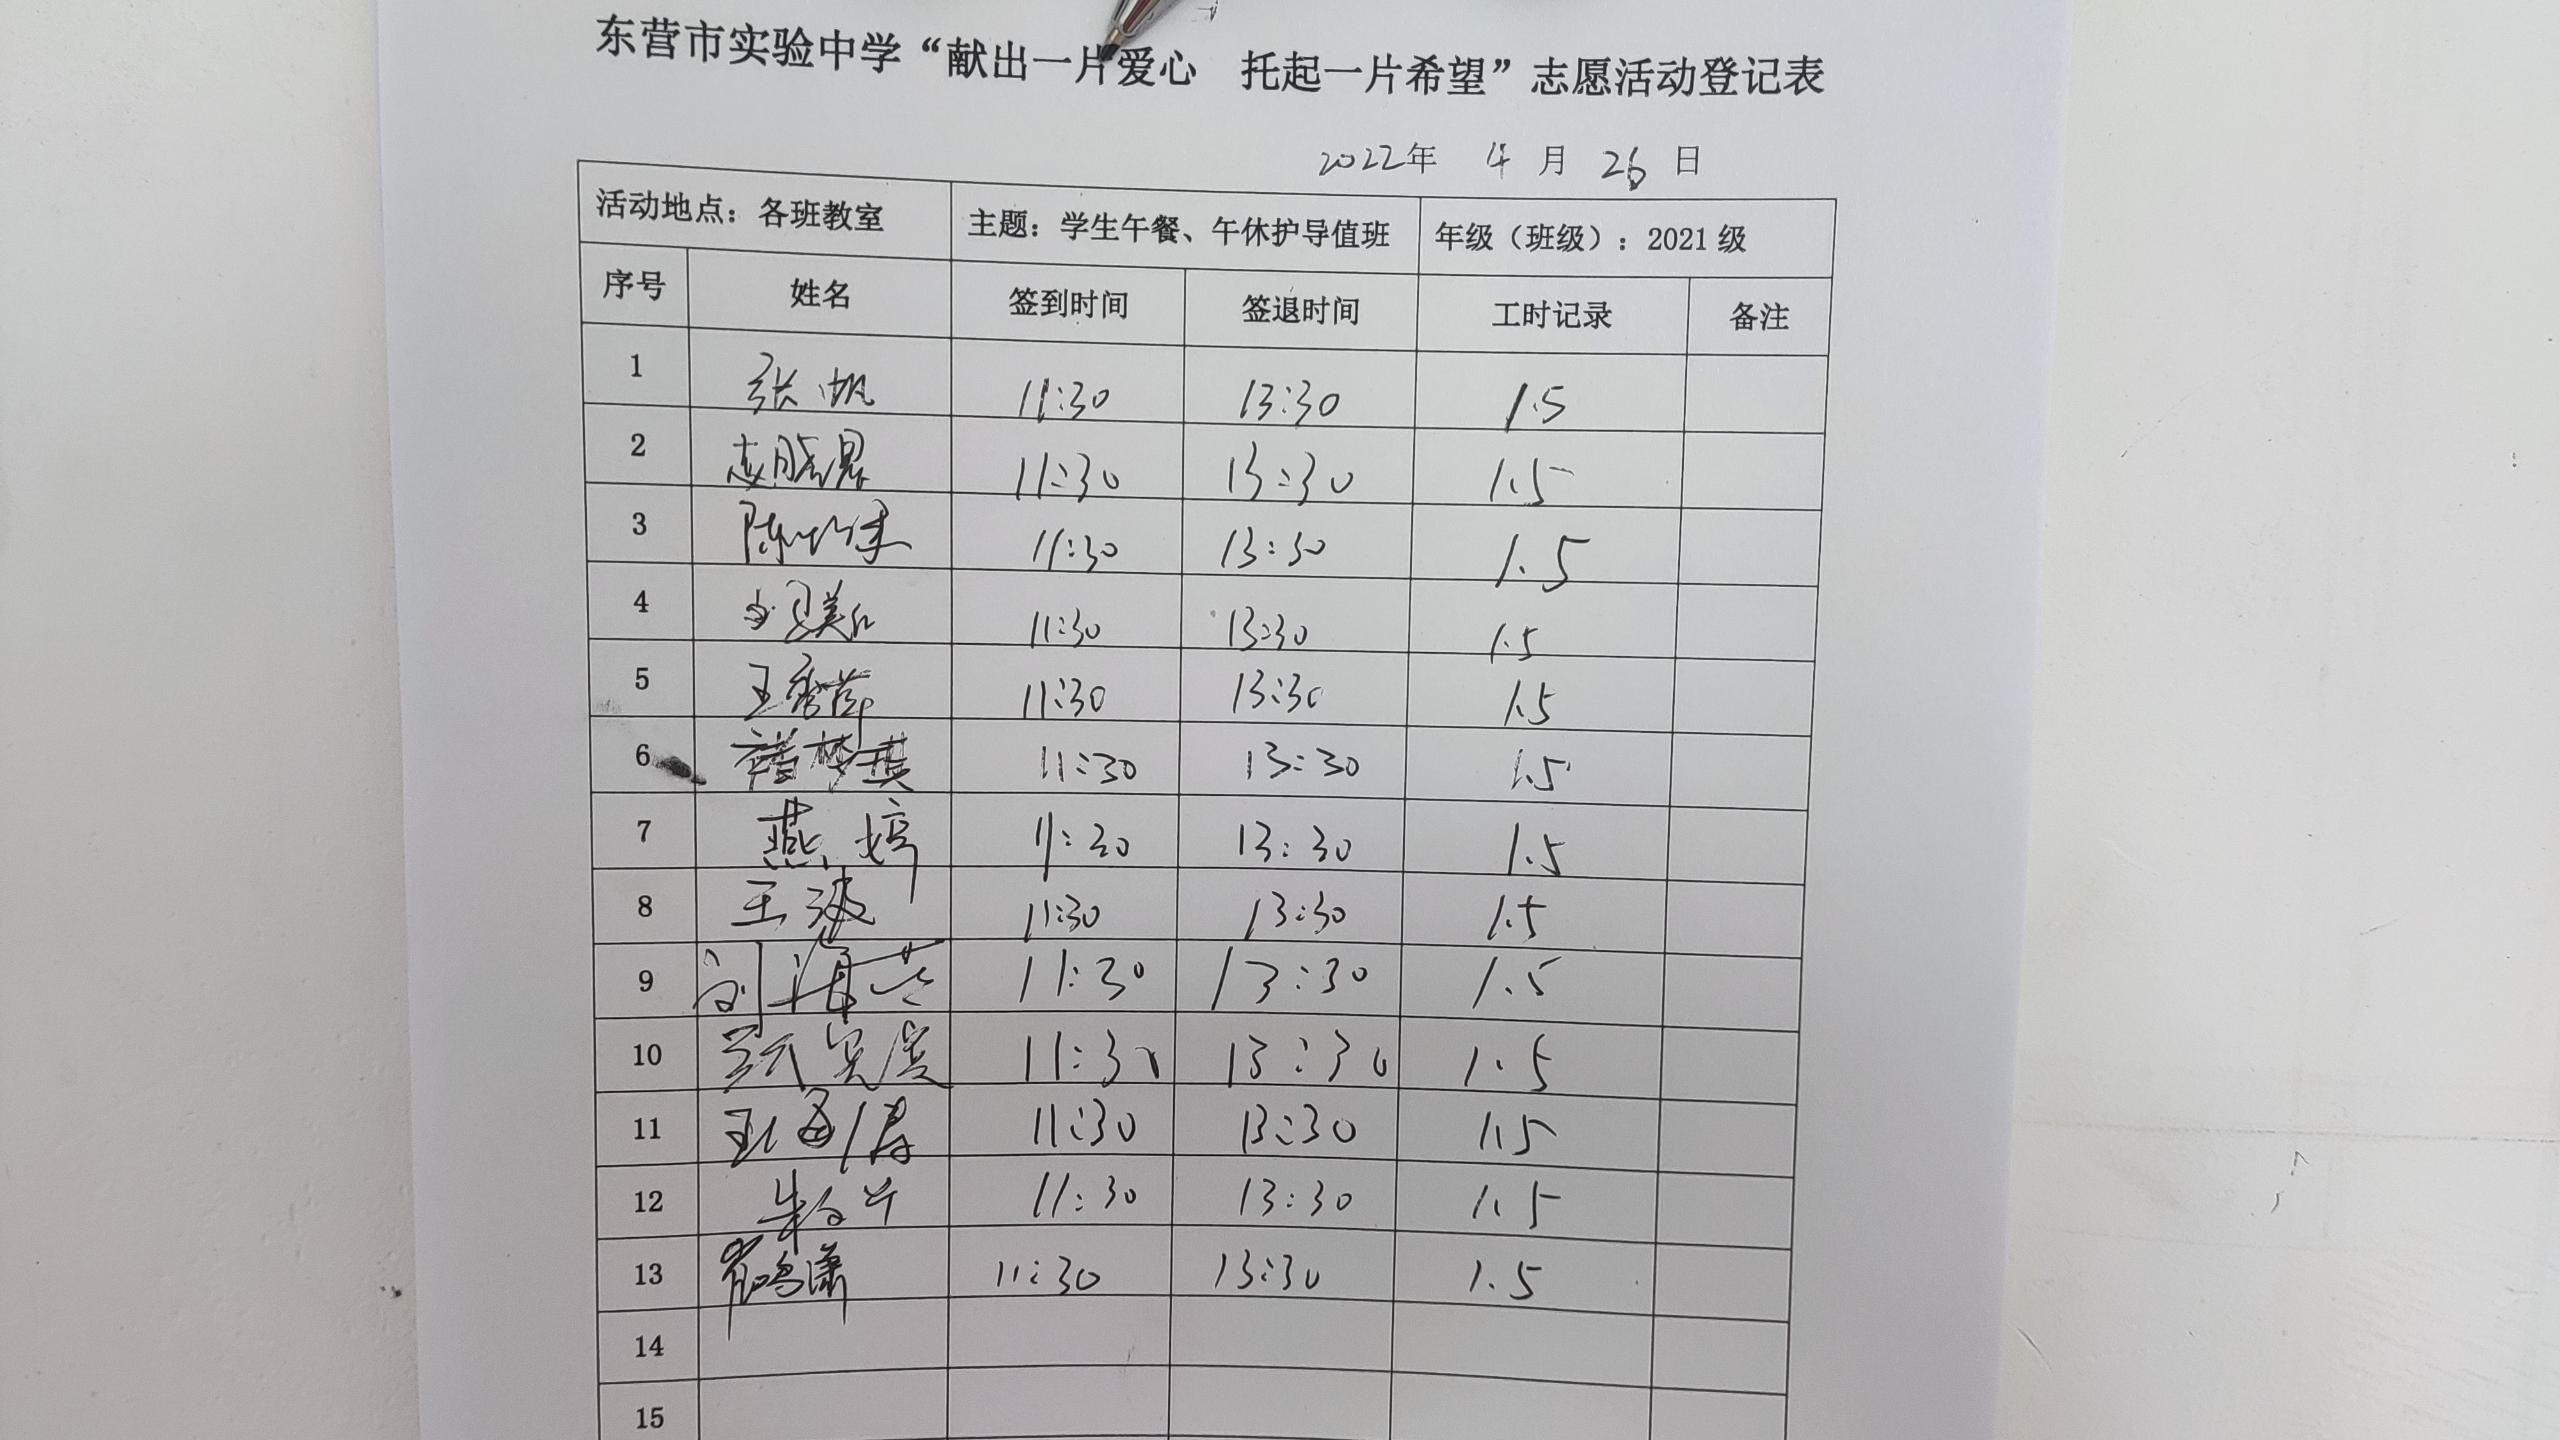 东营市实验中学“献出一片爱心 托起一片希望”志愿活动登记表
2022年 4 月 26 日
活动地点：各班教室 主题：学生午餐、午休护导值班 年级（班级）：2021级
序号 姓名 签到时间 签退时间 工时记录 备注
1 张帆 11:30 13:30 1.5
2 11:30 13:30 1.5
3 11:30 13:30 1.5
4 11:30 13:30 1.5
5 王秀萍 11:30 13:30 1.5
6 11:30 13:30 1.5
7 燕婷 11:30 13:30 1.5
8 王波 11:30 13:30 1.5
9 刘海芸 11:30 13:30 1.5
10 11:30 13:30 1.5
11 11:30 13:30 1.5
12 11:30 13:30 1.5
13 崔鸣潇 11:30 13:30 1.5
14
15